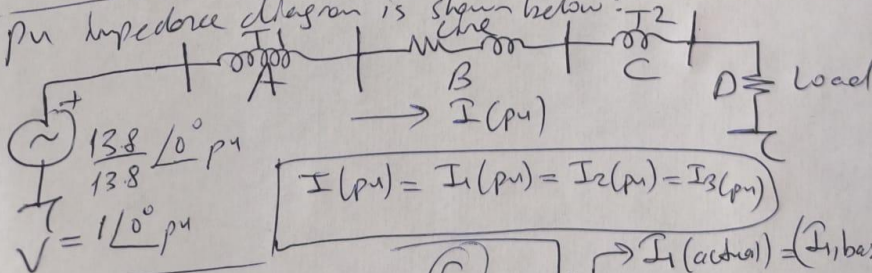 pu Impedance diagram is shown below.
T1 Line T2
A B C D Load
+
13.8/13.8 ∠0° pu
→ I (pu)
I(pu) = I1(pu) = I2(pu) = I3(pu)
V = 1∠0° pu
→ I1(actual) = (I1,bas